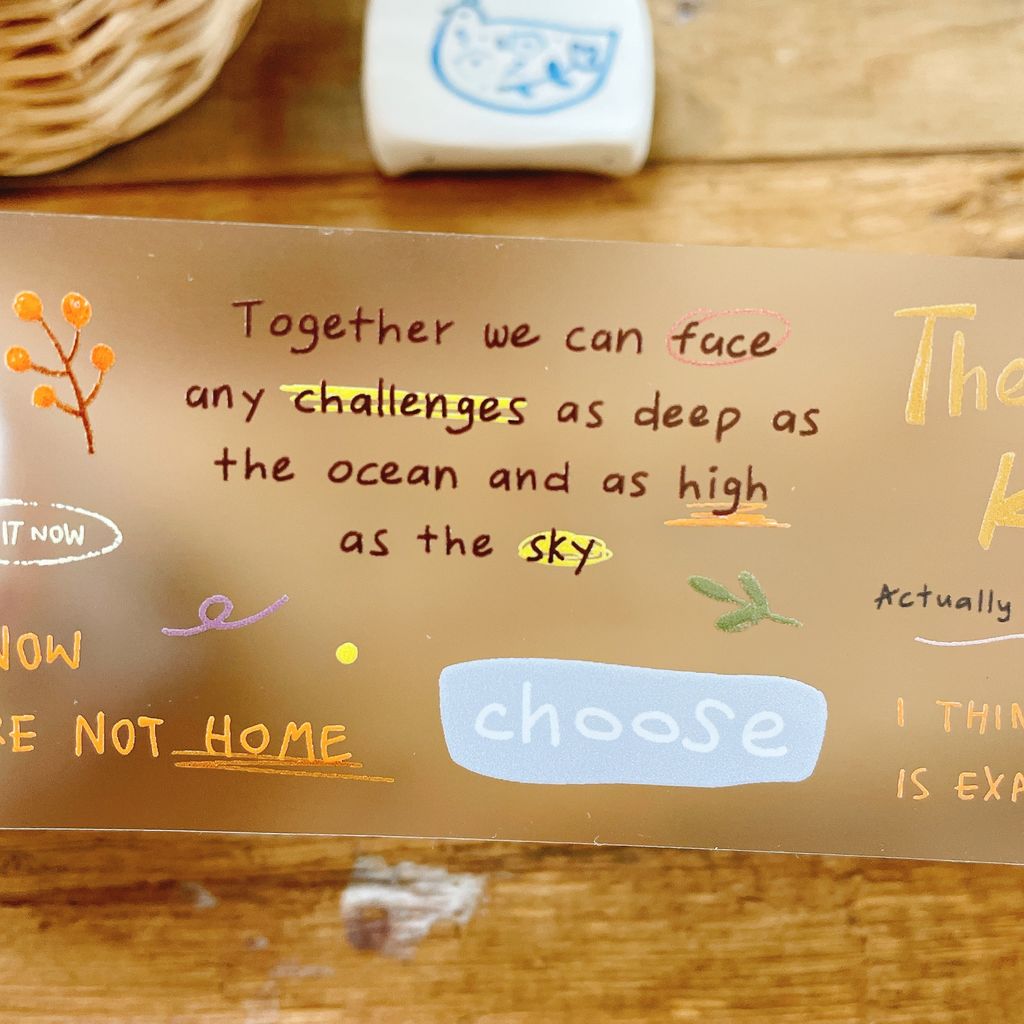 Together we can face
any challenges as deep as
the ocean and as high
as the sky
IT NOW
NOW
NOT HOME
choose
The
Actually
I
IS